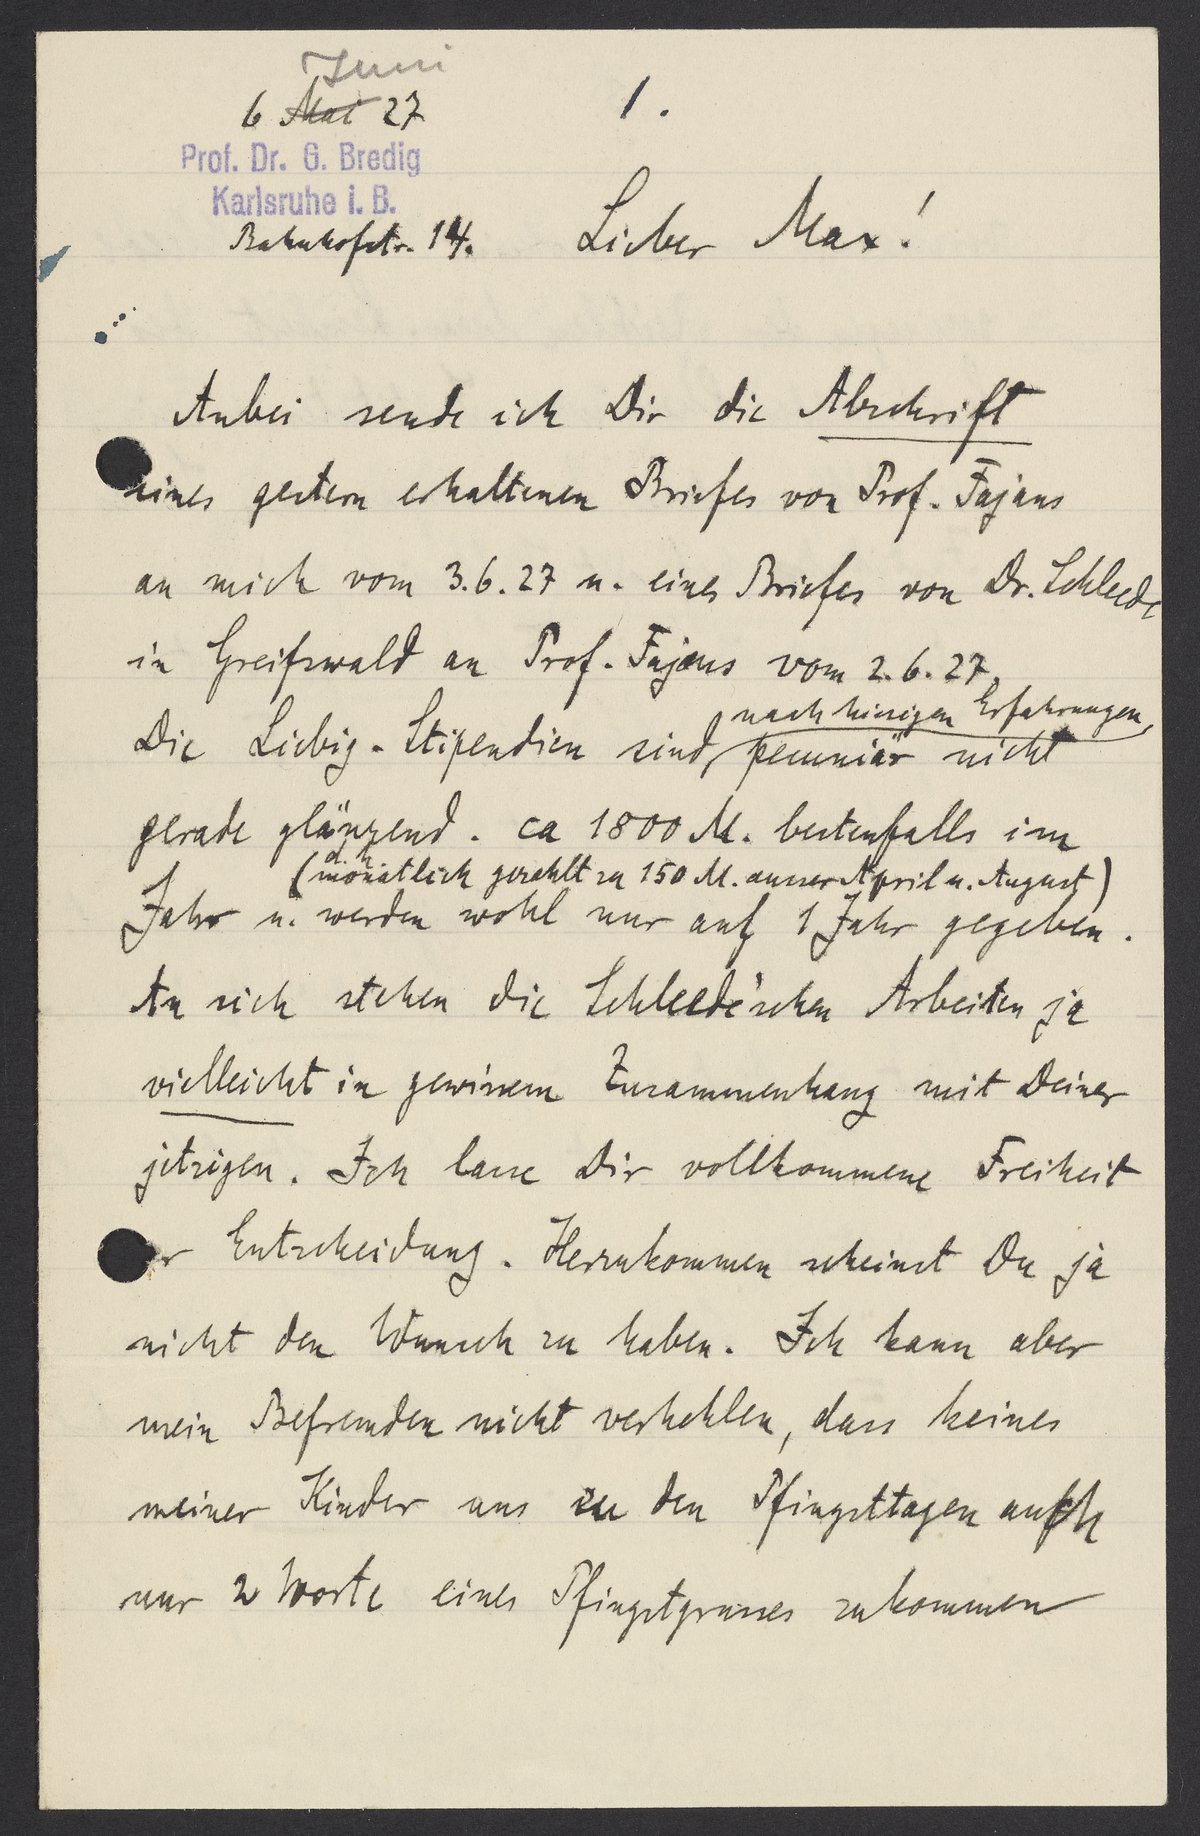 Juni
6 Mai 27
1.
Prof. Dr. G. Bredig
Karlsruhe i. B.
Bahnhofstr. 14.
Lieber Max!
Anbei sende ich Dir die Abschrift
eines gestern erhaltenen Briefes von Prof. Fajans
an mich vom 3.6.27 u. eines Briefes von Dr. Schleede
in Greifswald an Prof. Fajans vom 2.6.27.
nach hiesigen Erfahrungen,
Die Liebig-Stipendien sind, pecuniär nicht
gerade glänzend. ca 1800 M. bestenfalls im
(d. h. monatlich gezahlt zu 150 M. ausser April u. August)
Jahr u. werden wohl nur auf 1 Jahr gegeben.
An sich stehen die Schleede'schen Arbeiten ja
vielleicht in gewissem Zusammenhang mit Deiner
jetzigen. Ich lasse Dir vollkommene Freiheit
der Entscheidung. Herzukommen scheinst Du ja
nicht den Wunsch zu haben. Ich kann aber
mein Befremden nicht verhehlen, dass keines
meiner Kinder uns zu den Pfingsttagen auch
nur 2 Worte eines Pfingstgrusses zukommen